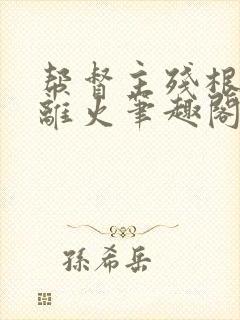 帮督主残根
離火筆趣閣
孫希岳